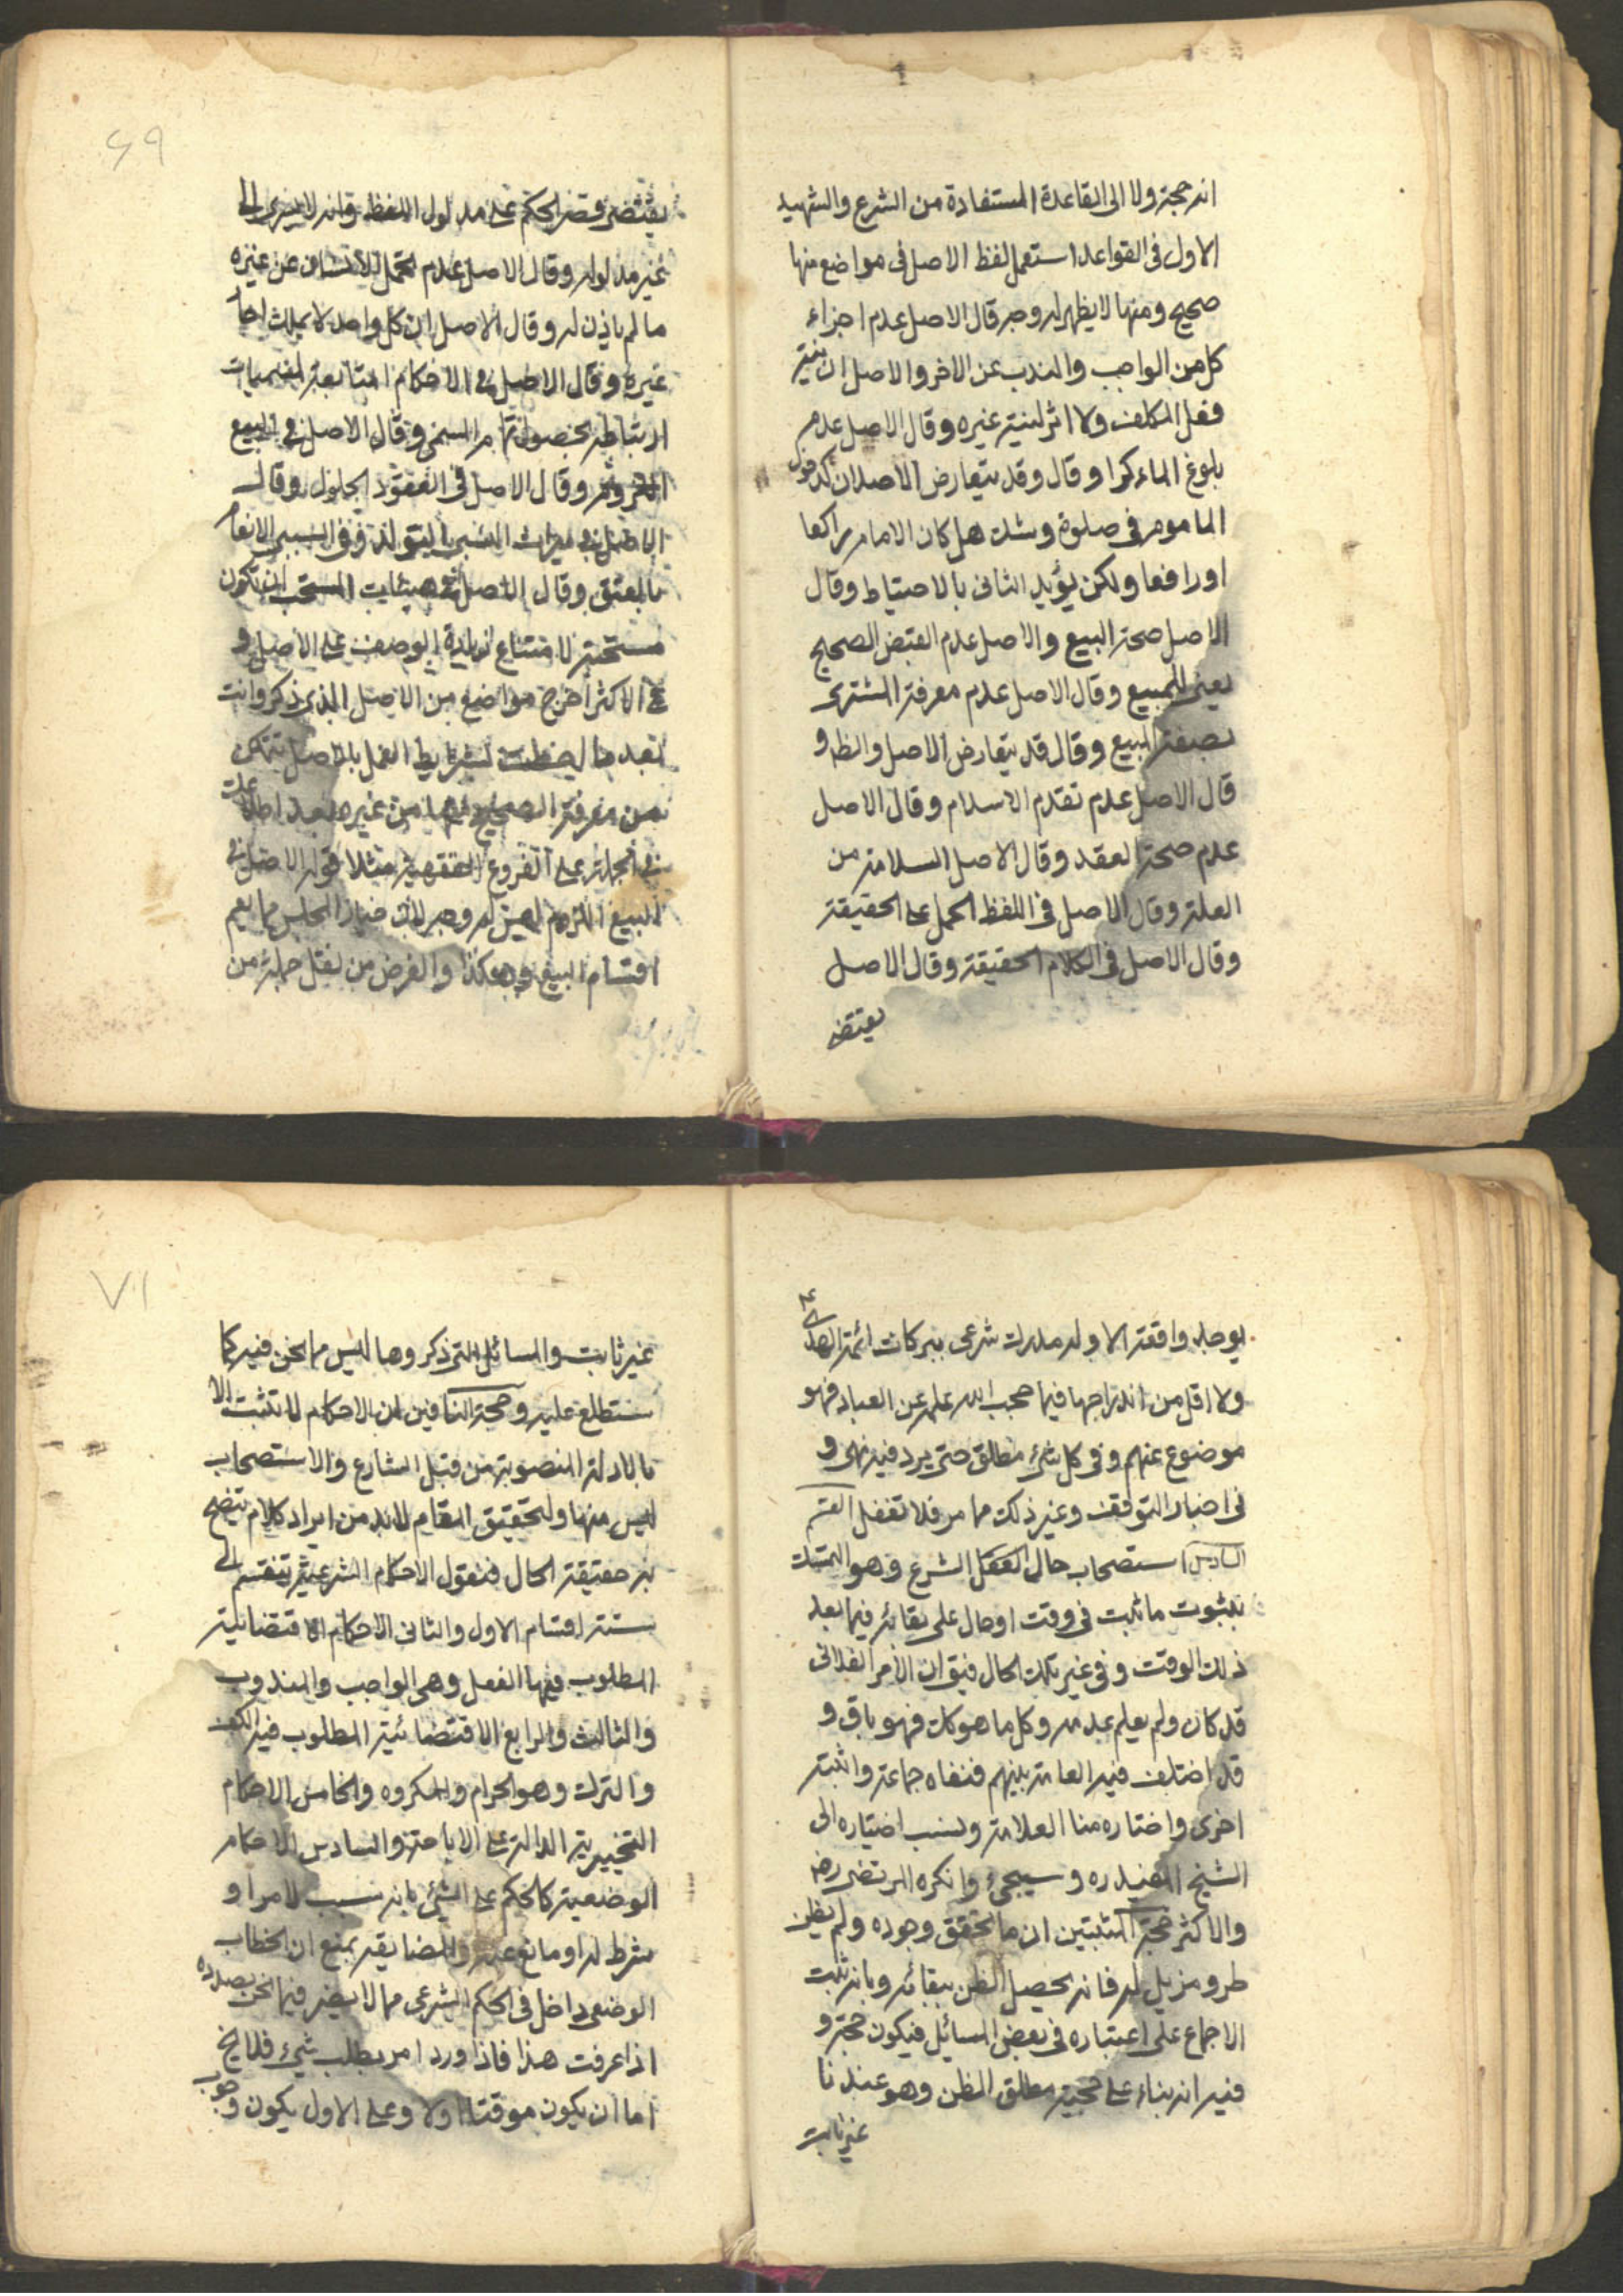 انه حجة ولا الى القاعدة المستفادة من الشرع والشهيد
الاول فى القواعد استعمل لفظ الاصل فى مواضع منها
صحيح ومنها لا يظهر له وجه قال الاصل عدم اجزاء
كل من الواجب والندب عن الاخر والاصل ان نية
فعل المكلف ولا اثر لنية غيره وقال الاصل عدم
بلوغ الماء كرا وقال وقد يتعارض الاصلان كدخول
الماموم فى صلوة وشك هل كان الامام راكعا
او رافعا ولكن يؤيد الثانى بالاحتياط وقال
الاصل صحة البيع والاصل عدم القبض الصحيح
يعنى للمبيع وقال الاصل عدم معرفة المشترى
بصفة المبيع وقال قد يتعارض الاصل والظ و
قال الاصل عدم تقدم الاسلام وقال الاصل
عدم صحة العقد وقال الاصل السلامة من
العلة وقال الاصل فى اللفظ الحمل على الحقيقة
وقال الاصل فى الكلام الحقيقة وقال الاصل
يقتضى
٦٩
يقتضى قصر الحكم على مدلول اللفظ وانه لا يسرى الى
غير مدلوله وقال الاصل عدم تحمل الانسان عن غيره
ما لم ياذن له وقال الاصل ان كل واحد لا يملك اجبار
غيره وقال الاصل فى الاحكام التابعة لمسميات
ارتباطه بحصولها وقال الاصل فى البيع
اللزوم وقال الاصل فى العقود الحلول وقال
الاصل فى ميراث النسبى التولد وفى السببى الانعام
بالعتق وقال الاصل فى هيئات المستحب ان تكون
مستحبة لامتناع زيادة الوصف على الاصل و
فى الاكثر اخرج مواضع من الاصل الذى ذكر وانت
بعد ما ليضبطت شرايط العمل بالاصل تتمكن
من معرفة الصحيح من غيره بعد اطلاعك
فى الجملة على الفروع الفقهية مثلا قوله الاصل فى
البيع اللزوم ليس له وجه لان خيار المجلس مما يعم
اقسام البيع وهكذا والغرض من نقل جملة من
يوجد واقعة الا وله مدرك شرعى ببركات ائمة الهدى ع
ولا اقل من اندراجها فيما حجب الله علمه عن العباد فهو
موضوع عنهم وفى كل شئ مطلق حتى يرد فيه نهى و
فى اخبار التوقف وغير ذلك مما مر فلا تغفل القسم
السادس استصحاب حال الشرع وهو التمسك
بثبوت ما ثبت فى وقت او حال على بقائه فيما بعد
ذلك الوقت وفى غير تلك الحال فيق ان الامر الفلانى
قد كان ولم يعلم عدمه وكل ما هو كك فهو باق و
قد اختلف فيه العامة بينهم فنفاه جماعة واثبته
اخرى واختاره منا العلامة ونسب اختياره الى
الشيخ المفيد ره وسيجئ وانكره المرتضى رض
والاكثر حجة المثبتين ان ما تحقق وجوده ولم يظن
طرو مزيل له فانه يحصل الظن ببقائه وبانه ثبت
الاجماع على اعتباره فى بعض المسائل فيكون حجة و
فيه انه بناء على حجية مطلق الظن وهو عندنا
غير ثابت
٧٠
غير ثابت والمسائل التى ذكروها ليس مما نحن فيه كما
ستطلع عليه وحجة النافين ان الاحكام لا تثبت الا
بالادلة المنصوبة من قبل الشارع والاستصحاب
ليس منها ولتحقيق المقام لا بد من ايراد كلام يتضح
به حقيقة الحال فنقول الاحكام الشرعية تنقسم الى
ستة اقسام الاول والثانى الاحكام الاقتضائية
المطلوب فيها الفعل وهى الواجب والمندوب
والثالث والرابع الاقتضائية المطلوب فيه الكف
والترك وهو الحرام والمكروه والخامس الاحكام
التخييرية الدالة على الاباحة والسادس الاحكام
الوضعية كالحكم على الشئ بانه سبب لامر او
شرط له او مانع عنه والمضايقة بمنع ان الخطاب
الوضعى داخل فى الحكم الشرعى مما لا يضر فيما نحن بصدده
اذا عرفت هذا فاذا ورد امر بطلب شئ فلا يخ
اما ان يكون موقتا او لا وعلى الاول يكون وجوب